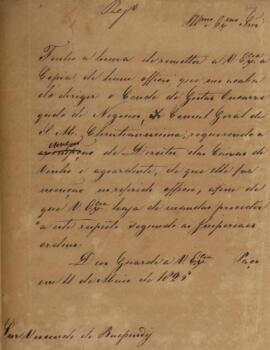 Illmo Exmo Snr
Tenho a honra de remetter a V. Exa a
Copia de hum officio que me acaba
de dirigir o Conde de Gestas Encarre
gado de Negocios, e Consul Geral de
S. M. Christianissima, requerendo a
de Direitos das Caixas de
vinho e aguardente, de que elle faz
menção no referido officio, afim de
que V. Exa haja de mandar proceder
a este respeito segundo as Imperiaes
ordens.
Deos Guarde a V. Exa Paço
em 11 de Maio de 1825
Snr Visconde de Baependy